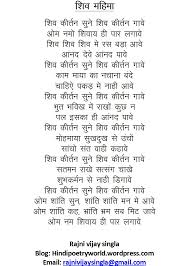 शिव महिमा
शिव कीर्तन सुने शिव कीर्तन गावे
ओम नमो शिवाय ही पार लगावे
शिव शिव शिव मे रस बड़ा आवे
आनंद देवे आनंद पावे
शिव कीर्तन सुने शिव कीर्तन गावे
काम माया का नचाना बंदे
चाहिए पकड़ मे नाही आवे
शिव कीर्तन सुने शिव कीर्तन गावे
भूत भविख मे राखों कुछ न
पल इसका ही आनंद पावे
शिव कीर्तन सुने शिव कीर्तन गावे
मोहमाया सुखदुख से उचो
सांचो संत वाही कहावे
शिव कीर्तन सुने शिव कीर्तन गावे
सतमन राखे सत्संग चाखे
शुभकर्मन से नाही डिगावे
शिव कीर्तन सुने शिव कीर्तन गावे
ओम शांति सुन, शांति शांति मन मे आवे
ओम शांति कह, भ्रांति भ्रम सब मिट जावे
ओम नमो शिवाय ही पार लगावे
Rajni vijay singla
Blog: Hindipoetryworld.wordpress.com
Email: rajnivijaysingla@gmail.com